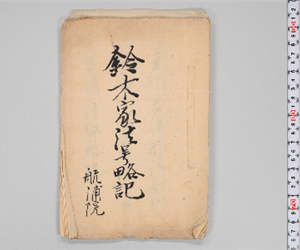 鈴木家法号略記
航浦院